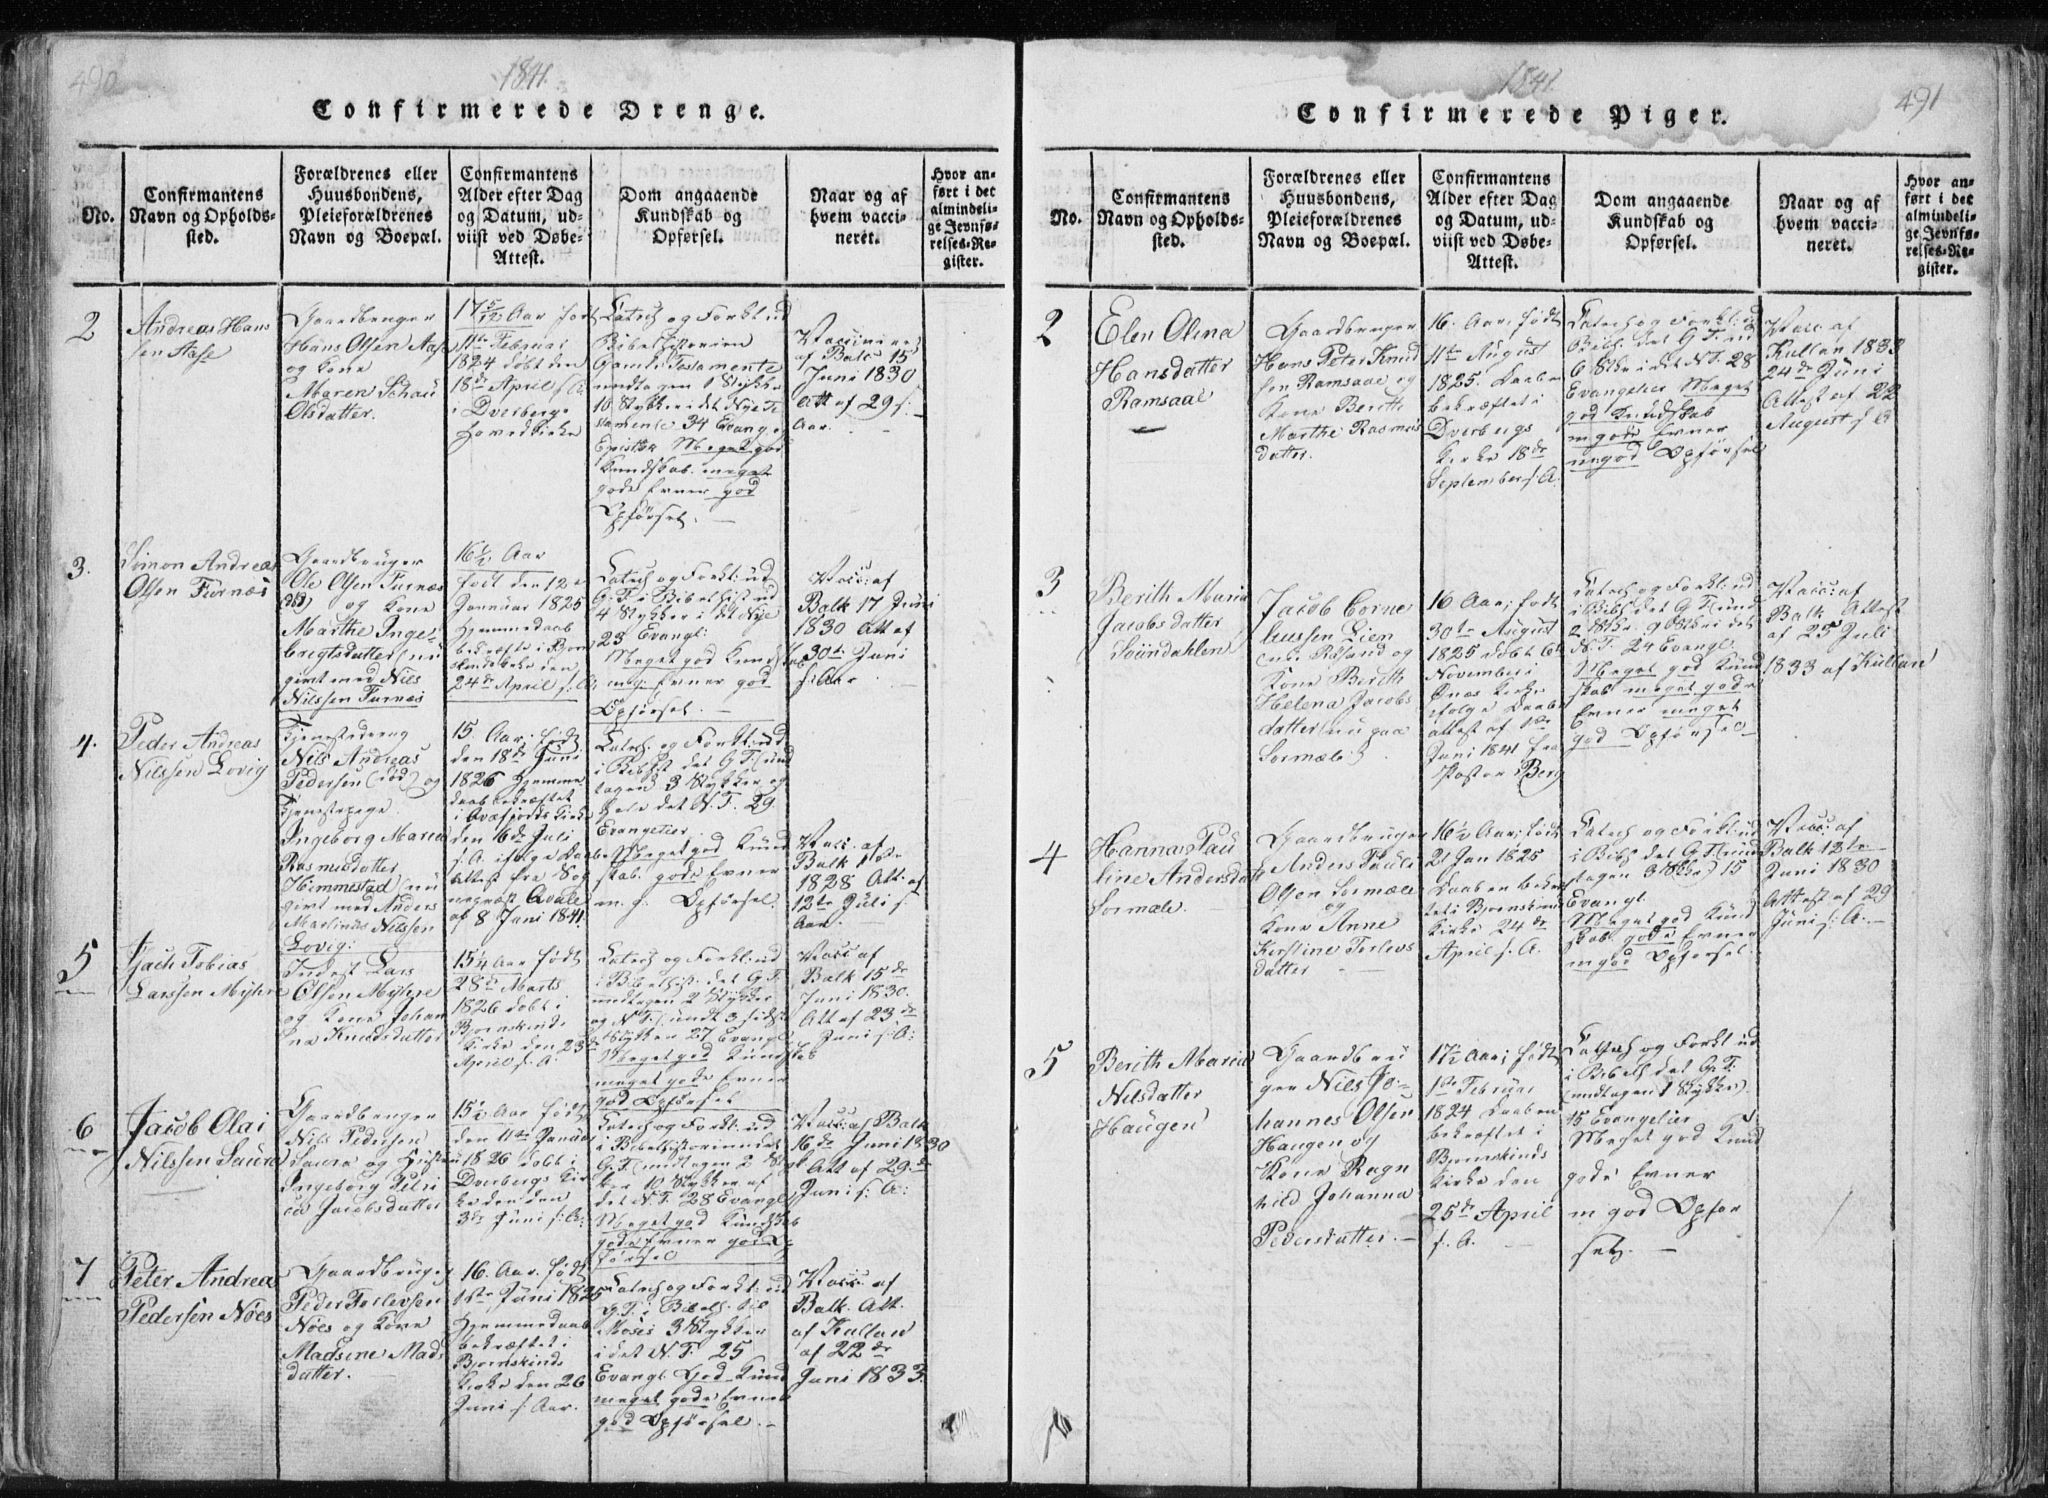 490
1841.
Confirmerede Drenge.
No.
Confirmantens
Navn og Opholds-
sted.
Forældrenes eller
Huusbondens,
Pleieforældrenes
Navn og Boepæl.
Confirmantens
Alder efter Dag
og Datum, ud-
viist ved Døbe-
Attest.
Dom angaaende
Kundskab og
Opførsel.
Naar og af
hvem vacci-
neret.
Hvor an-
ført i det
almindeli-
ge Jevnfø-
relses-Re-
gister.
2
Andreas Hans
sen Aase
Gaardbruger
Hans Olsen Aase
og Kone
Maren Schau
Olsdatter.
17 5/12 Aar født
11te Februar
1824 døbt den
18de April s: A:
i Dverbergs
Hovedkirke
Catech og Forkl: ud
Bibelhistorien
Gamle Testamente
undtagen 1 Stykke
10 Stykker i det Nye Te
stamente 34 Evang. og
Epistler Meget god
Kundskab. meget
gode Evner god
Opførsel. —
Vaccineret
af Balk 15
Juni 1830
Att af 29 s:
Aar.
3.
Simon Andreas
Olsen Furnæs
Gaardbruger
Ole Olsen Furnæs
(død) og Kone
Marthe Inge-
brigtsdatter / nu
givt med Nils
Nilssen Furnæs
16 1/2 Aar
født den 12te
Januar 1825
Hjemmedaab
bekræfte i Bjørn
skinds Kirke den
24de April s: A:
Catech og Forkl: ud
G. T. i Bibelhist ud
4 Stykker i det Nye
23 Evangl:
Meget god Kundskab
m: g: Evner god
Opførsel. —
Vacc: af
Balk 17 Juni
1830 Att af
30te Juni
s: Aar
4.
Peder Andreas
Nilssen Lovig
Tjenestedreng
Nils Andreas
Pedersen (død) og
Tjenestepige
Ingeborg Maria
Rasmusdatter
Himmestad / nu
givt med Anders
Martinus Nilssen
Lovig:
15. Aar. født
den 18de Juni
1826 Hjemme
daab bekræftet
i Qvæfjords Kirke
den 16de Juli
s. A. ifølge Daabs
Attest fra Sog
nepræst Qvale
af 8 Juni 1841.
Catech. og Forkl: ud
i Bibhst det G. T. (und
tagen 3 Stykker og
hele det N. T. 29
Evangelier.
Meget god Kund
skab. gode Evner
m. g. Opførsel.
Vacc. af
Balk 1ste
1828 Att: af
12te Juli s:
Aar.
5
Zach Tobias
Larssen Myhre
Inderst Lars
Olsen Myhre
og Kone Johan
na Knudsdatter
15 1/4 Aar født
28de Marts
1826 døbt i
Bjørnskinds
Kirke den 23de
April s: A.
Catech og Forkl: ud
i Bibelhist. det G. T.
undtagen 2 Stykker
og N. T. / undt 3 sidste
Stykker 27 Evangl
Meget god Kundskab
meget gode Evner
god Opførsel
Vacc af
Balk 15de
Juni 1830.
Att af 23de
Juni s: A:
6
Jacob Olai
Nilssen Saura
Gaardbruger
Nils Pedersen
Saura og Hustru
Ingeborg Petri
cia Jacobsdatter
15 1/2 Aar født
den 11te Januar
1826 døbt i
Dverbergs Kir
ke den den
3de Juni s: A:
Catech og Forkl: ud
i Bibelhistorien
G. T. (undtagen 2 Styk
ker 10 Stykker af
det N. T. 28 Evangl
Meget god Kundskab
gode Evner god Op
førsel
Vacc: af Balk
16de Juni 1830
Att af 29de
Juni s: A:
7
Peter Andreas
Pedersen Nöes
Gaardbruger
Peder Torlevsen
Nöes og Kone
Madsine Mads
datter.
16. Aar. født
16te Juni 1825
Hjemmedaab
bekræftet i
Bjørnskinds
Kirke den 26
Juni s: Aar.
Catech og Forkl: ud
G. T. i Bibelh. til
Moses 3 Stykker
i det N. T. 25
Evangl. God Kund
meget gode Evner
god Opførsel. —
Vacc: af
Balk. Att.
af Kullan
af 22de
Juni 1833.
1841.
491
Confirmerede Piger.
No.
Confirmantens
Navn og Opholds-
sted.
Forældrenes eller
Huusbondens,
Pleieforældrenes
Navn og Boepæl.
Confirmantens
Alder efter Dag
og Datum, ud-
viist ved Døbe-
Attest.
Dom angaaende
Kundskab og
Opførsel.
Naar og af
hvem vacci-
neret.
Hvor an-
ført i det
almindeli-
ge Jevnfø-
relses-Re-
gister.
2
Elen Olina
Hansdatter
Ramsaae
Gaardbruger
Hans Peter Knud
sen Ramsaae og
Kone Berith
Marthe Rasmus
datter.
16. Aar, født
11te August
1825. Daaben
bekræftet i
Dverbergs
Kirke 18de
September s: A.
Catech og Forkl: ud
Bibl: det G. T. ud
6 Stkr i det N. T. 28
Evangelier Meget
god Kundskab
m gode Evner
m god Opførsel
Vacc. af
Kullan 1833
24de Juni
Attest af 22
August s: A
3
Berith Maria
Jacobsdatter
Söündahlen
Jacob Corne
liussen Lien
og
Kone Berith
Helena Jacobs
datter / nu paa
Sormæle)
16 Aar; født
30te August
1825 døbt
November i
Önæs Kirke
ifølge Daabs
attest af 1ste
Juni 1841 fra
Pastor i Berg
Catech og Forkl: ud
i Bibh det G. T. (und
2 Stkr. 9 Stkr i det
N. T. 24 Evangl.
Meget god Kund
skab meget gode
Evner meget
god Opførsel
Vacc: af
Balk Attest
af 25 Juli
1833 af Kullan
4
Hanna Pau
line Andersdat
Sormæle.
Gaardbruger
Anders Pauli
Olsen Sormæle
og
Kone Anne
Kirstine Torlevs
datter —
16 1/2 Aar; født
21 Jan 1825
Daaben bekræf
tet i Bjørnskinds
Kirke 24de
April s: A.
Catech og Forkl: ud
i Bibh det G. T. (und
tagen 3 Stkr) 15
Evangl.
Meget god Kund
skab. gode Evner
m god Opførsel.
Vacc: af
Balk 12te
Juni 1830
Attest af 29
Juni s: A. —
5
Berith Maria
Nilsdatter
Haugen
Gaardbru
ger Nils Jo-
hannes Olsen
Haugen og
Kone Ragn
hild Johanna
Pedersdatter. —
17 1/2 Aar; født
1ste Februar
1824 Daaben
bekræftet i
Bjørnskinds
Kirke den
25de April
s. A. —
Catech og Forkl ud
i Bibelh det G. T:
(undtagen 1 Stykke)
15 Evangelier
Meget god Kund
gode Evner
m god Opfør
sel. —